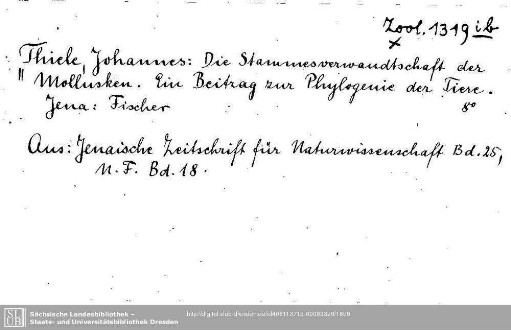 Zool. 1319 ib
x
Thiele, Johannes: Die Stammesverwandtschaft der
" Mollusken. Ein Beitrag zur Phylogenie der Tiere.
Jena: Fischer 8°
Aus: Jenaische Zeitschrift für Naturwissenschaft Bd. 25,
N. F. Bd. 18.
SLUB
Sächsische Landesbibliothek –
Staats- und Universitätsbibliothek Dresden